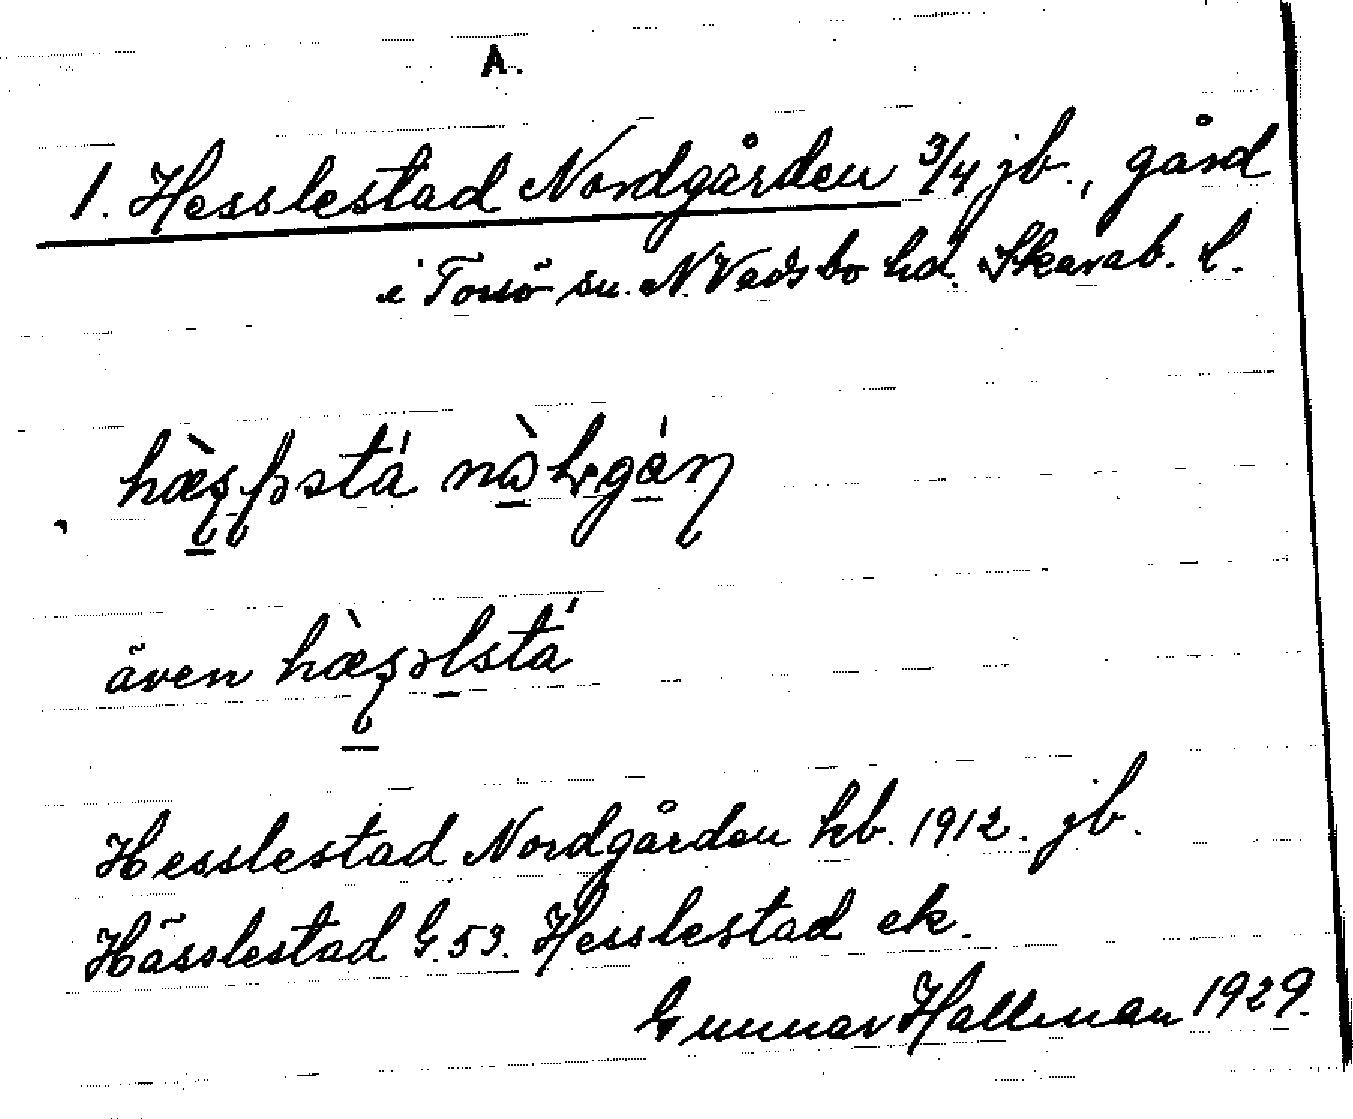 A.
1. Hesslestad Nordgården 3/4 jb., gård
i Torsö sn. N. Vadsbo hd. Skarab. l.
även
Hesslestad Nordgården kb. 1912. jb.
Hässlestad G. 53. Hesslestad ek.
Gunnar Hallman 1929.